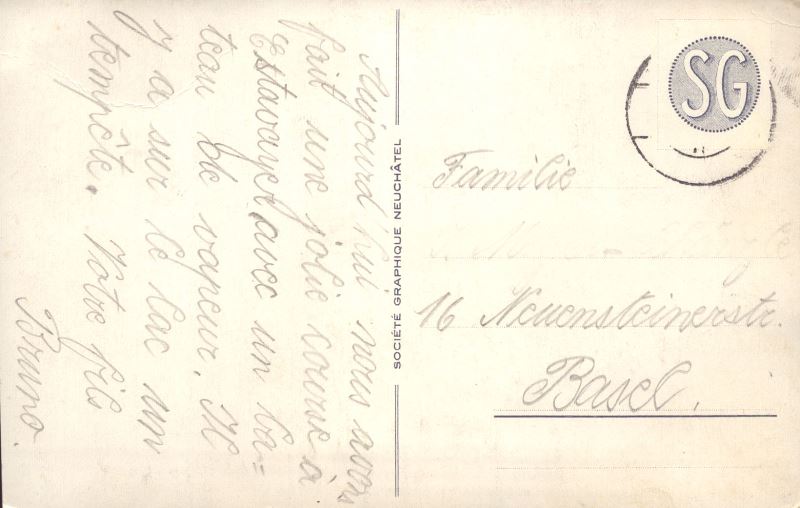 Aujourd'hui nous avons
fait une jolie course à
Estavayer avec un ba=
teau de vapeur. Il
y a sur le lac un
tempête. Votre fils
Bruno.
SOCIÉTÉ GRAPHIQUE NEUCHÂTEL
SG
Familie
16 Neuensteinerstr.
Basel.